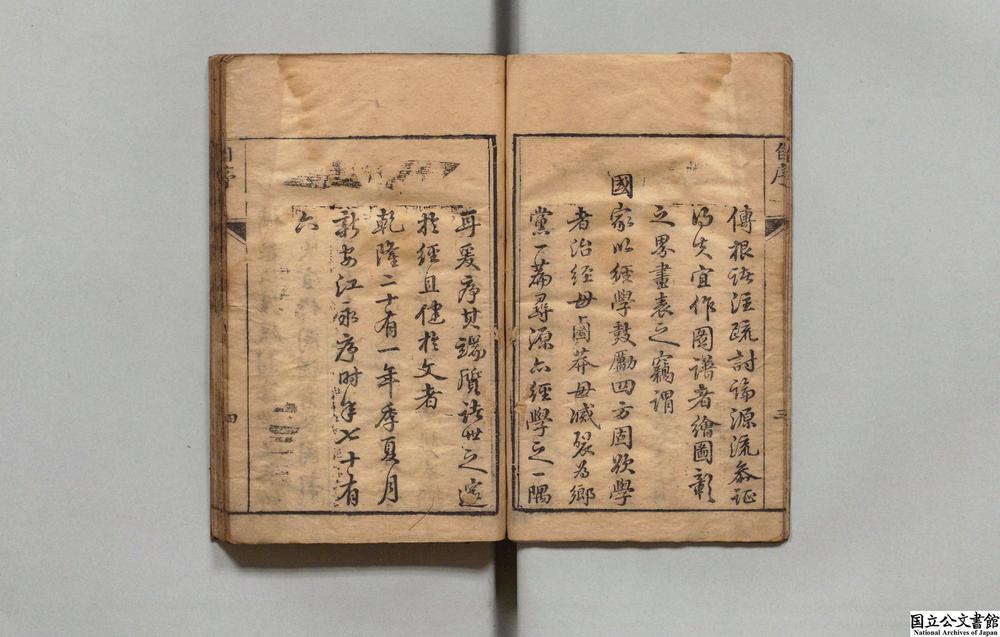 自序
三
傳根據注疏討論源流參證
得失宜作圖譜者繪圖彰
之界畫表之竊謂
國家以經學鼓勵四方固欲學
者治經毋鹵莽毋滅裂為鄉
黨一篇尋源亦經學之一隅
耳爰序其端質諸世之邃
於經且健於文者
乾隆二十有一年季夏月
新安江永序时年七十有
六
自序
四
国立公文書館
National Archives of Japan